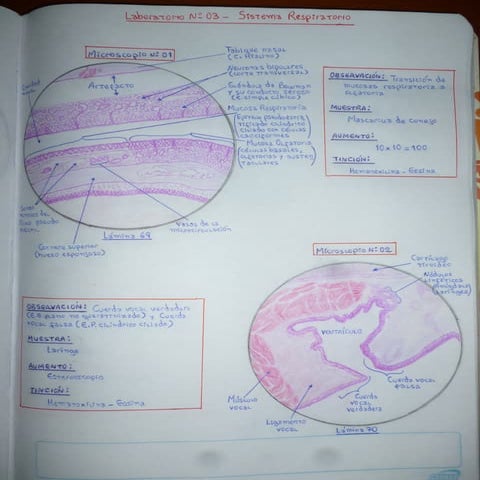 Laboratorio Nº 03 - Sistema Respiratorio
Microscopio Nº 01
Tabique nasal
(C. Hialino)
Artefacto
Neuronas bipolares
(corte transversal)
Glándula de Bowman
y su conducto
Mucosa Respiratoria
cilíndrico
ciliado con células
caliciformes
Mucosa Olfatoria
(células basales,
olfatorias y susten
taculares)
Vasos de la
microcirculación
Cornete superior
(hueso esponjoso)
Lámina 69
OBSERVACIÓN: Transición de
mucosas respiratoria a
olfatoria
MUESTRA:
Mascarus de conejo
AUMENTO:
10 x 10 = 100
TINCIÓN:
Hematoxilina - Eosina
Microscopio Nº 02
Cartílago
tiroideo
Nódulos
linfáticos
VENTRÍCULO
Cuerda vocal
falsa
Cuerda
vocal
verdadera
Ligamento
vocal
Músculo
vocal
Lámina 70
OBSERVACIÓN: Cuerda vocal verdadera
(E.P. plano no queratinizado) y Cuerda
vocal falsa (E.P. cilíndrico ciliado)
MUESTRA:
Laringe
AUMENTO:
Estereoscopio
TINCIÓN:
Hematoxilina - Eosina